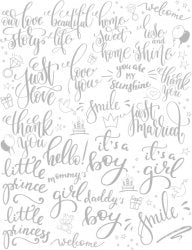 our love story
beautiful life
home sweet home
welcome
love and shine
just love
love you
you are my sunshine
thank you
thank you
smile
just married
hello!
it's a boy
it's a girl
little prince
mommy's girl
daddy's boy
little princess
smile
welcome